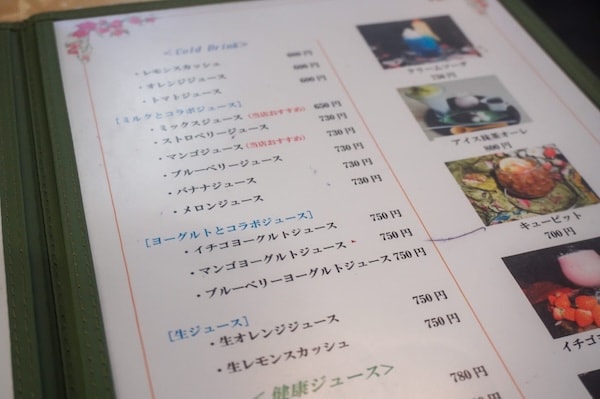 <Cold Drink>
・レモンスカッシュ 600円
・オレンジジュース 600円
・トマトジュース 600円
[ミルクとコラボジュース]
・ミックスジュース(当店おすすめ) 650円
・ストロベリージュース 730円
・マンゴジュース(当店おすすめ) 730円
・ブルーベリージュース 730円
・バナナジュース 730円
・メロンジュース 730円
[ヨーグルトとコラボジュース]
・イチゴヨーグルトジュース 750円
・マンゴヨーグルトジュース 750円
・ブルーベリーヨーグルトジュース 750円
[生ジュース]
・生オレンジジュース 750円
・生レモンスカッシュ 750円
<健康ジュース>
780円
クリームソーダ
750円
アイス抹茶オーレ
800円
キューピット
700円
イチゴヨ